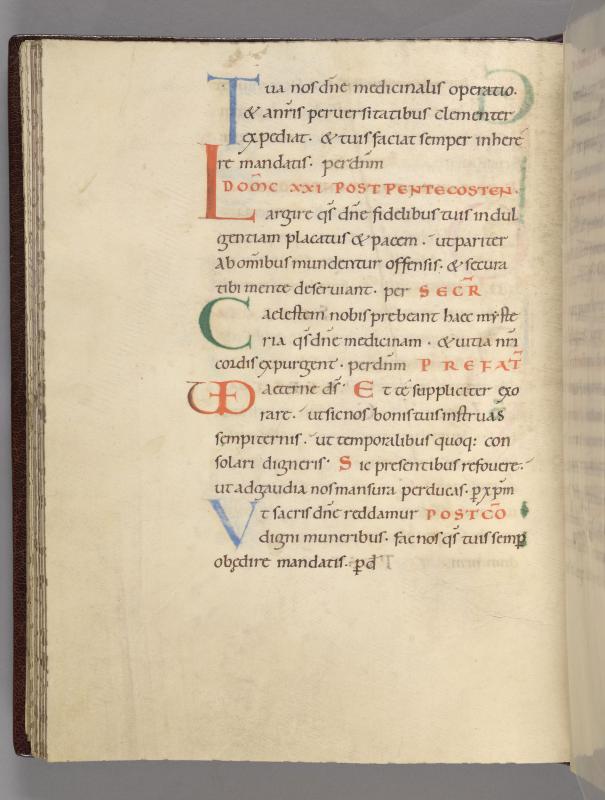 Tua nos dn̄e medicinalis operatio·
& an̄ris perversitatibus clementer
expediat· & tuis faciat semper inhere
re mandatis· per dn̄m
DOM̄C XXI POST PENTECOSTEN·
Largire qs̄ dn̄e fidelibus tuis indul
gentiam placatus & pacem· ut pariter
ab omībus mundentur offensis· & secura
tibi mente deserviant· per SECR̄
Caelestem nobis prebeant haec myste
ria qs̄ dn̄e medicinam· & vitia nr̄i
cordis expurgent· per dn̄m PREFAT̄
VD aeterne ds̄· Et te suppliciter exo
rare· ut sic nos bonis tuis instruas
sempiternis· ut temporalibus quoq: con
solari digneris· Sic presentibus refovere·
ut ad gaudia nos mansura perducas· p̱ xp̄m
Ut sacris dn̄e reddamur POSTC̄O
digni muneribus· fac nos qs̄ tuis semp̱
obędire mandatis· p̱ d̄